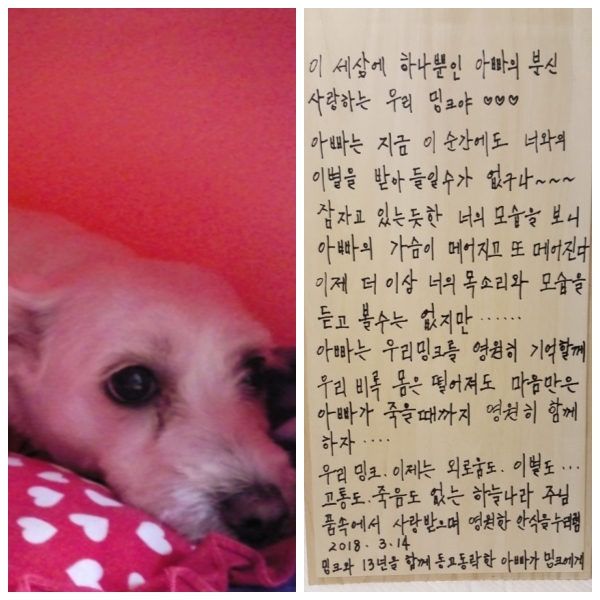 이 세상에 하나뿐인 아빠의 분신
사랑하는 우리 밍크야 ♡♡♡
아빠는 지금 이 순간에도 너와의
이별을 받아들일수가 없구나~~~
잠자고 있는듯한 너의 모습을 보니
아빠의 가슴이 메어지고 또 메어진다
이제 더 이상 너의 목소리와 모습을
듣고 볼수는 없지만 ······
아빠는 우리밍크를 영원히 기억할께
우리 비록 몸은 떨어져도 마음만은
아빠가 죽을때까지 영원히 함께
하자 ····
우리 밍크. 이제는 외로움도. 이별도 ···
고통도. 죽음도 없는 하늘나라 주님
품속에서 사랑받으며 영원한 안식을 누려렴
2018. 3.14
밍크와 13년을 함께 동고동락한 아빠가 밍크에게